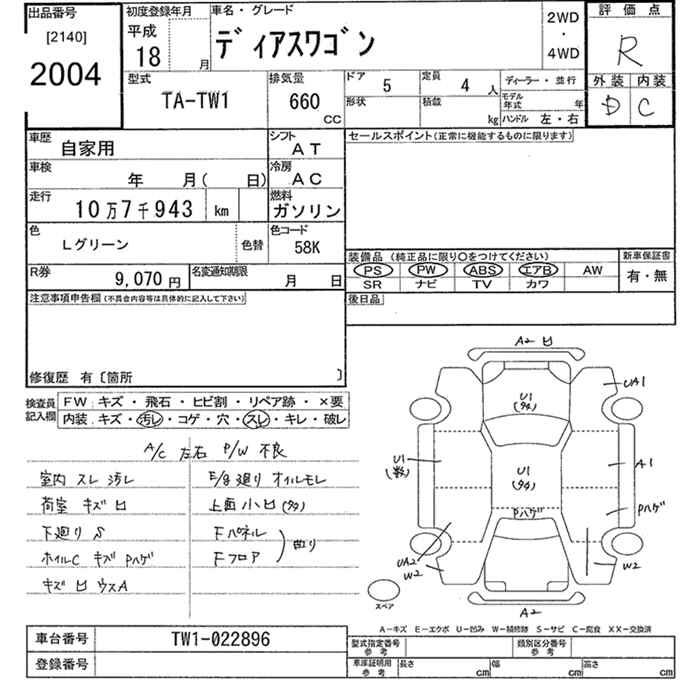 出品番号
[2140]
2004
初度登録年月
平成
18 月
車名・グレード
ディアスワゴン
2WD
・
4WD
評価点
R
外装 内装
D C
型式
TA-TW1
排気量
660
CC
ドア 5
定員 4 人
形状
積載 kg
ディーラー・並行
モデル年式 年
ハンドル 左・右
車歴
自家用
シフト
AT
車検
年 月( 日)
冷房
AC
走行
10万7千943 km
燃料
ガソリン
色
Lグリーン
色替
色コード
58K
R券
9,070円
名変通知期限
月 日
セールスポイント(正常に機能するものに限ります)
装備品 (純正品に限り○をつけてください)
PS PW ABS エアB AW
SR ナビ TV カワ
新車保証書
有・無
後日品
注意事項申告欄(不具合内容等は具体的に記入して下さい)
修復歴 有〔箇所 〕
検査員
記入欄
FW:キズ・飛石・ヒビ割・リペア跡・×要
内装:キズ・汚レ・コゲ・穴・スレ・キレ・破レ
A/C 左右 P/W 不良
室内 スレ 汚レ
荷室 キズ 凹
下廻り S
ホイルC キズ Pハゲ
キズ 凹 ウスA
E/g 廻り オイルモレ
上面 小凹 (多)
Fパネル
Fフロア
曲り
A2 凹
U1
(多)
UA1
U1
U1
(多)
A1
Pハゲ
Pハゲ
UA2
W2
W2
A2
スペア
A−キズ E−エクボ U−凹み W−補修跡 S−サビ C−腐食 XX−交換済
車台番号
TW1-022896
登録番号
型式指定番号
参考
類別区分番号
参考
車庫証明用
参考
長さ cm
幅 cm
高さ cm